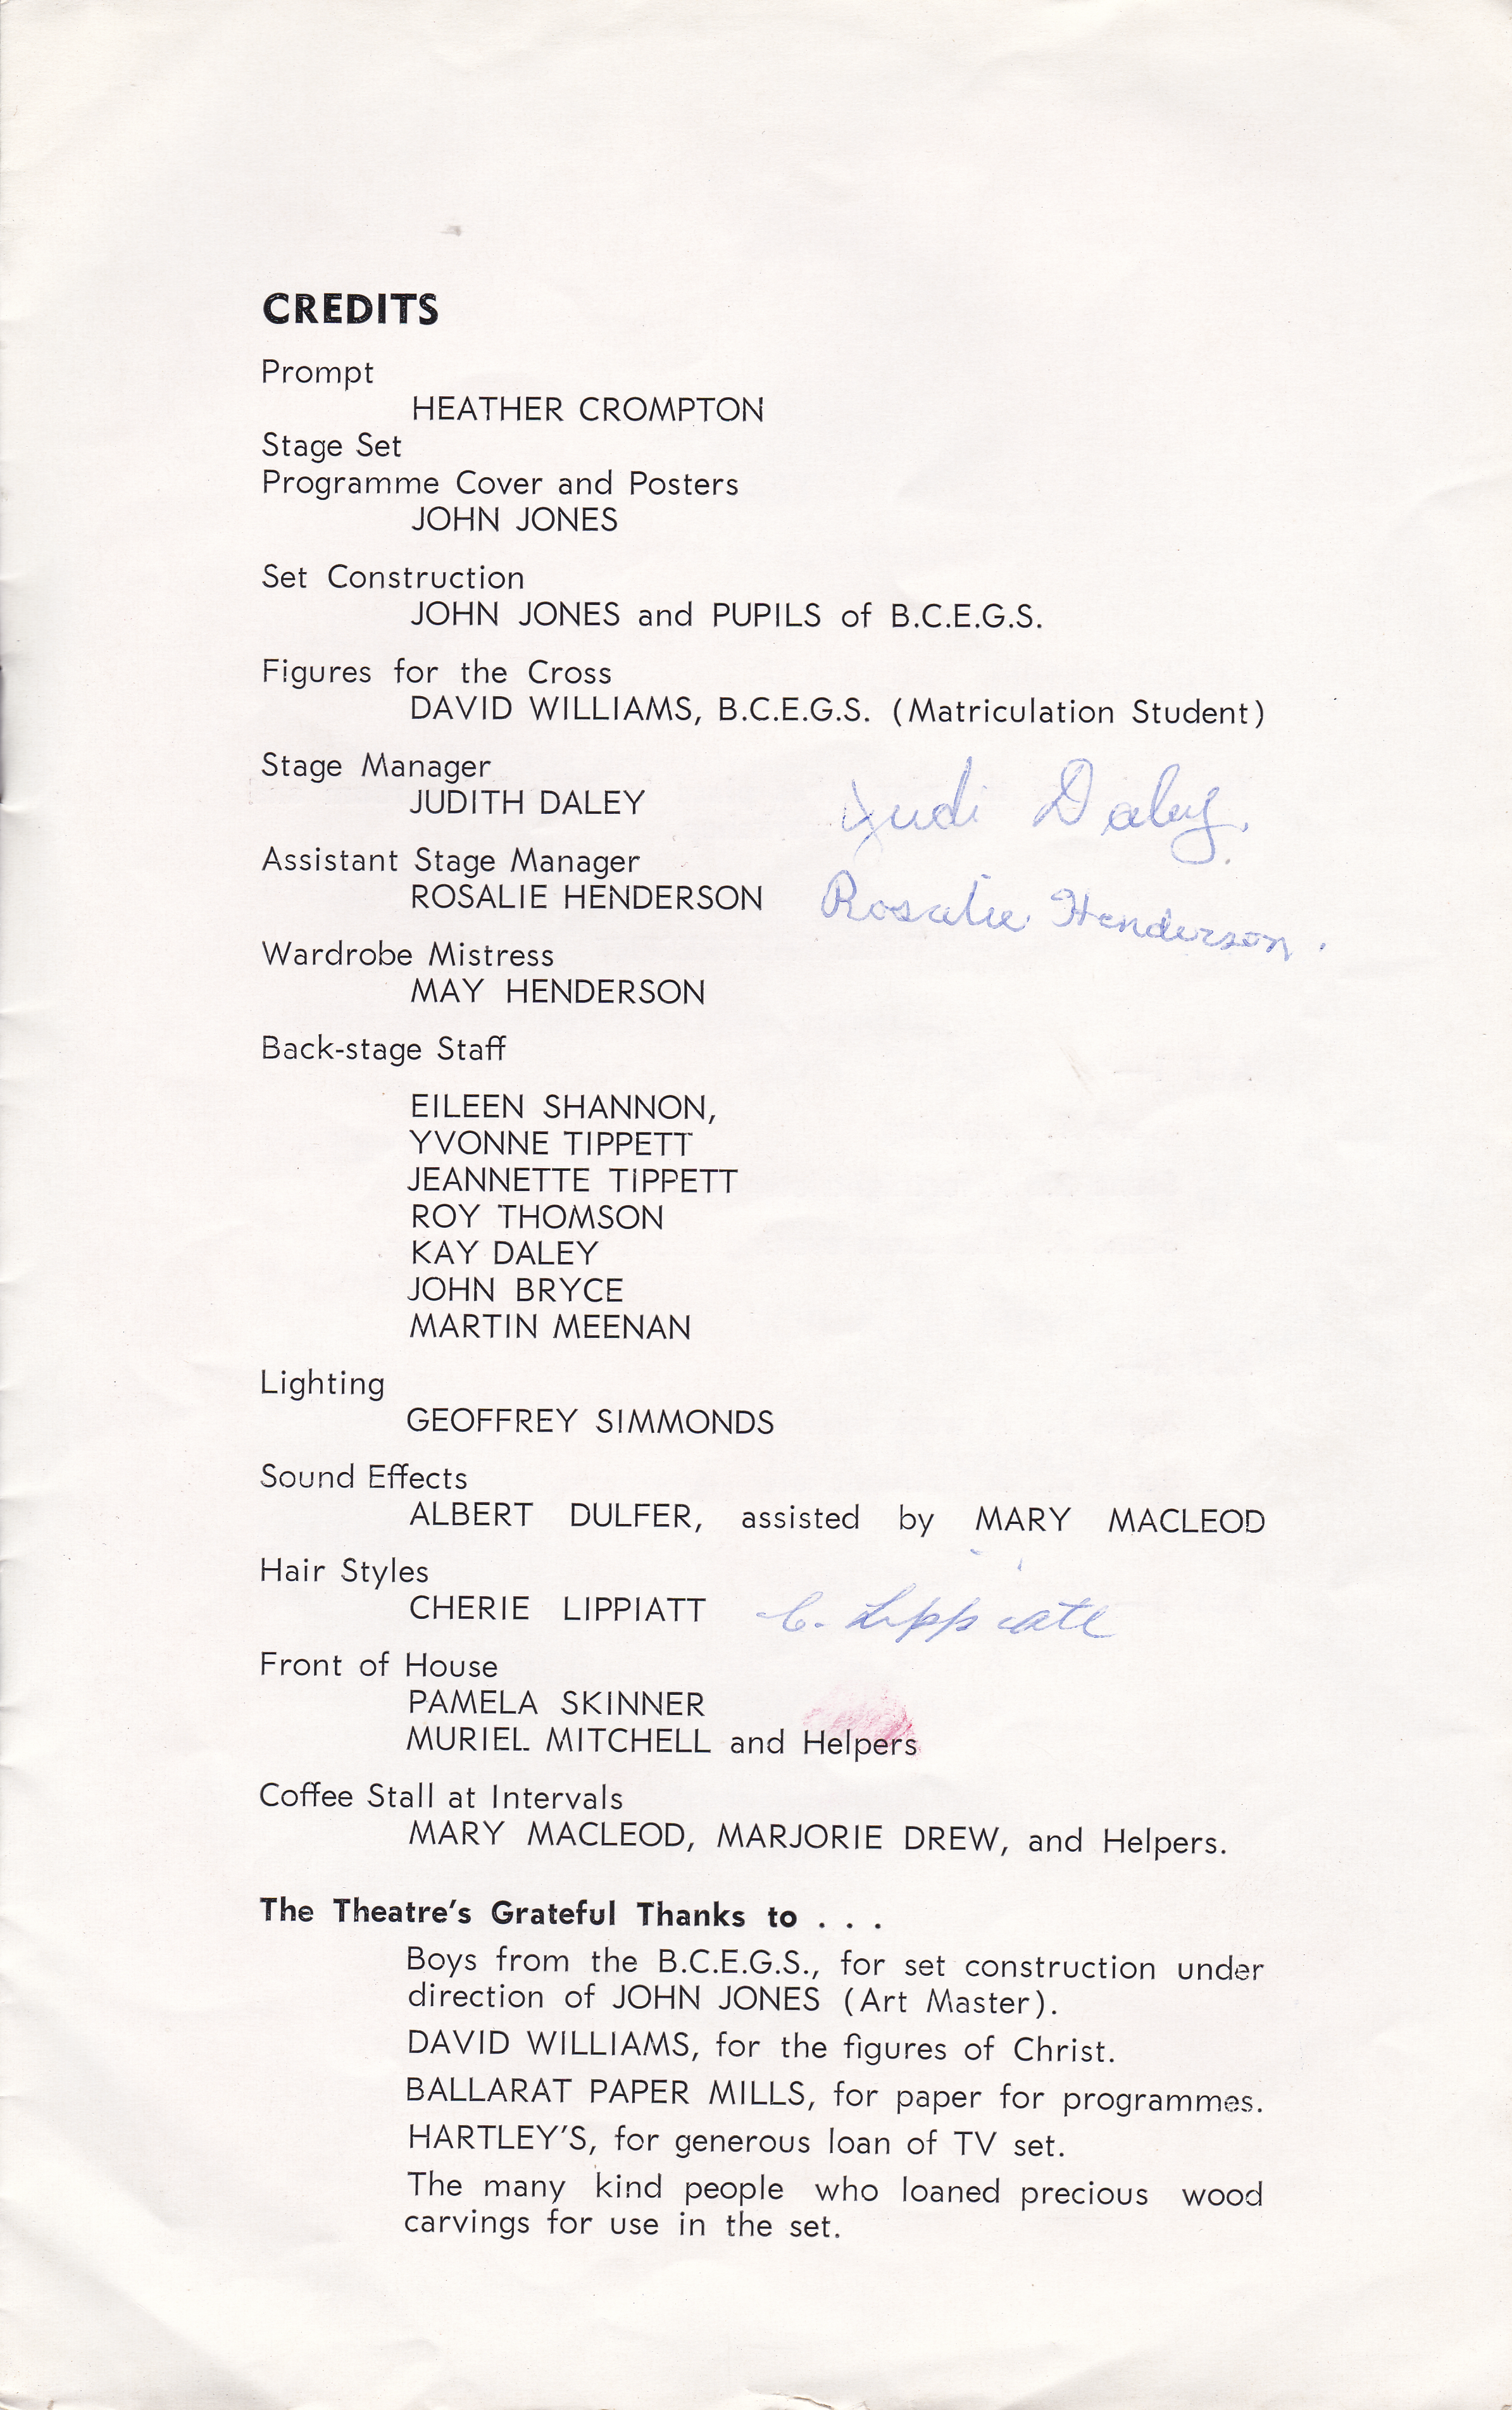 CREDITS
Prompt
HEATHER CROMPTON
Stage Set
Programme Cover and Posters
JOHN JONES
Set Construction
JOHN JONES and PUPILS of B.C.E.G.S.
Figures for the Cross
DAVID WILLIAMS, B.C.E.G.S. (Matriculation Student)
Stage Manager
JUDITH DALEY Judi Daley.
Assistant Stage Manager
ROSALIE HENDERSON Rosalie Henderson.
Wardrobe Mistress
MAY HENDERSON
Back-stage Staff
EILEEN SHANNON,
YVONNE TIPPETT
JEANNETTE TIPPETT
ROY THOMSON
KAY DALEY
JOHN BRYCE
MARTIN MEENAN
Lighting
GEOFFREY SIMMONDS
Sound Effects
ALBERT DULFER, assisted by MARY MACLEOD
Hair Styles
CHERIE LIPPIATT C. Lippiatt
Front of House
PAMELA SKINNER
MURIEL MITCHELL and Helpers
Coffee Stall at Intervals
MARY MACLEOD, MARJORIE DREW, and Helpers.
The Theatre's Grateful Thanks to . . .
Boys from the B.C.E.G.S., for set construction under
direction of JOHN JONES (Art Master).
DAVID WILLIAMS, for the figures of Christ.
BALLARAT PAPER MILLS, for paper for programmes.
HARTLEY'S, for generous loan of TV set.
The many kind people who loaned precious wood
carvings for use in the set.